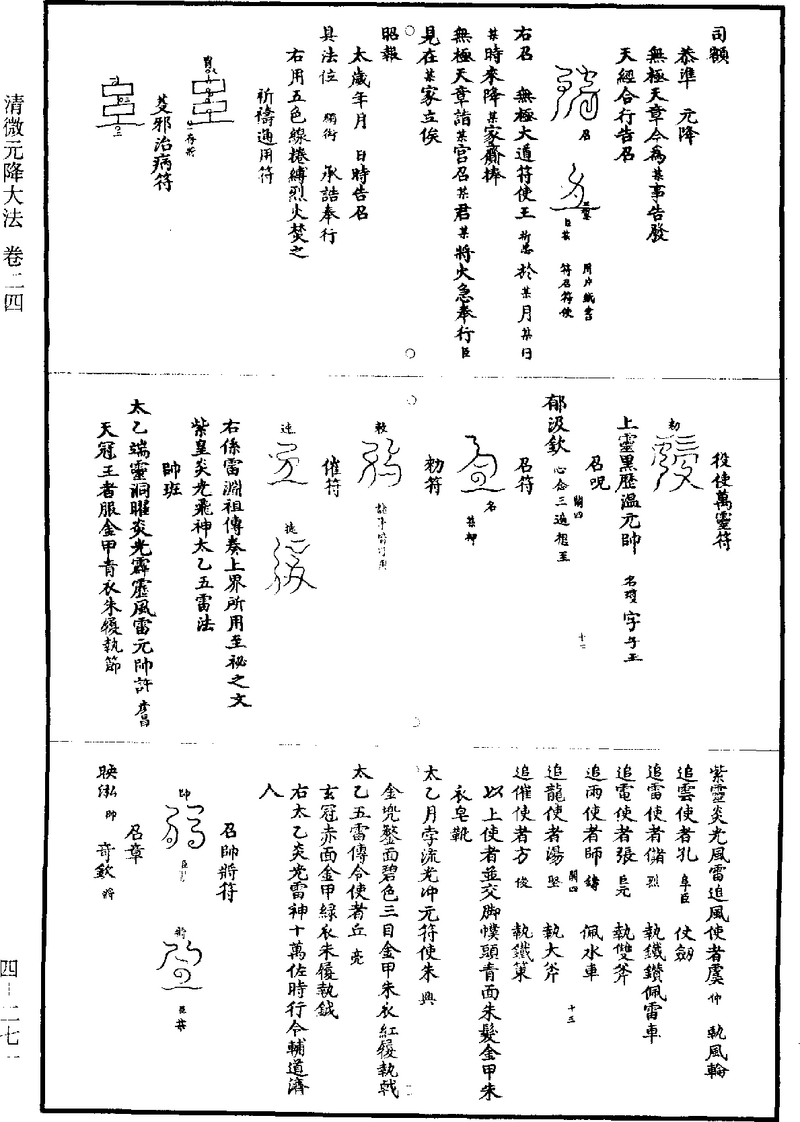 司額
恭準　元降
無極天章今為某事告發
天經合行告召
召
臣某
用戶紙書
符召符使
右召　無極大道符使王　於某月某日
某時來降某家齋捧
無極天章詣某宮召某君某將火急奉行臣
見在某家立俟
昭報
太歲年月　日時告召
具法位　順術　承誥奉行
右用五色線捲縛烈火焚之
祈禱通用符
芟邪治病符
役使萬靈符
勑
上靈黑歷溫元帥　名瓊　字子玉
召呪
郁汲欽　心念三遍想至
召符
名
某押
勑符
催符
速
捷
右係雷淵祖傳奏上界所用至祕之文
紫皇炎光飛神太乙五雷法
帥班
太乙端靈洞曜炎光霹靂風雷元帥許
天冠王者服金甲青衣朱履執節
紫靈炎光風雷追風使者虞　仲　執風輪
追雲使者孔　阜臣　仗劒
追雷使者儲　烈　執鐵鑽佩雷車
追電使者張　巨元　執雙斧
追雨使者師　鑄　佩水車
追龍使者湯　堅　執大斧
追催使者方　俊　執鐵策
以上使者並交脚幞頭青面朱髮金甲朱
衣皂靴
太乙月孛流光冲元符使朱　興
金兜鍪面碧色三目金甲朱衣紅履執戟
太乙五雷傳令使者丘　亮
玄冠赤面金甲綠衣朱履執鉞
右太乙炎光雷神十萬佐時行令輔道濟
人
召帥將符
帥
將
臣某
召章
映泓　帥　奇欽　將
清微元降大法　卷二四
四－二七一